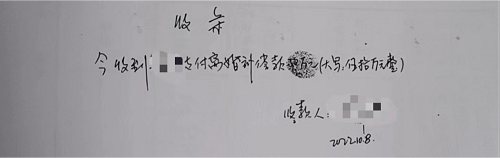 收条
今收到: 支付离婚补偿款 万元(大写:伍拾万元整)
收款人:
2022.10.8.